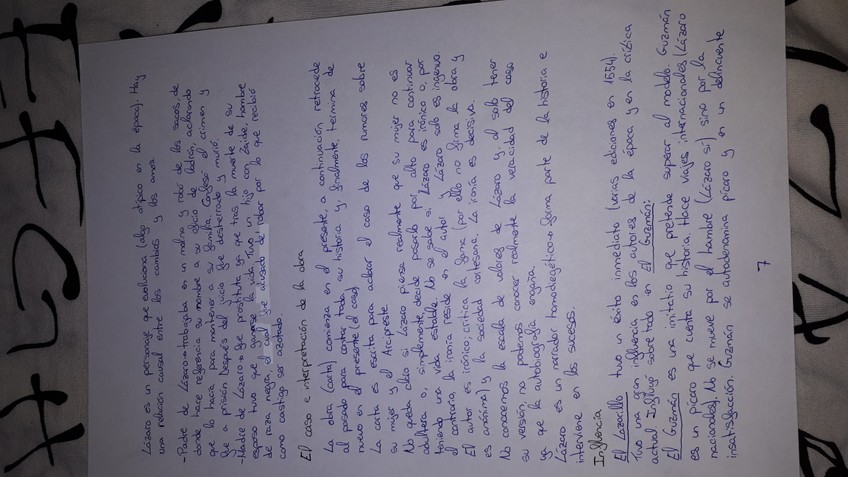 Lázaro es un personaje que evoluciona (algo atípico en la época). Hay
una relación causal entre los cambios y los amos.
-Padre de Lázaro→trabajaba en un molino y robó de los sacos, de
donde hace referencia su nombre a su oficio de ladrón, aclarando
que lo hacía para mantener a su familia. Confesó el crimen y
fue a prisión después del juicio fue desterrado y murió.
-Madre de Lázaro→se prostituta ya que tras la muerte de su
esposo tuvo que ganarse la vida. Tuvo un hijo con Zaide, hombre
de raza negra, el cual fue acusado de robar por lo que recibió
como castigo ser azotado.
El caso e interpretación de la obra
La obra (carta) comienza en el presente, a continuación retrocede
al pasado para contar toda su historia y, finalmente, termina de
nuevo en el presente (el caso)
La carta es escrita para aclarar el caso de los rumores sobre
su mujer y el Arcipreste.
No queda claro si Lázaro piensa realmente que su mujer no es
adúltera o, simplemente decide pasarlo por alto para continuar
teniendo una vida estable. No se sabe si Lázaro es irónico o, por
el contrario, la ironía reside en el autor y Lázaro solo es ingenuo.
El autor es irónico; critica la fama (por ello no firma la obra y
es anónima) y la sociedad cortesana. La ironía es decisiva.
No conocemos la escala de valores de Lázaro y, al solo tener
su versión, no podemos conocer realmente la veracidad del caso
ya que la autobiografía engaña.
Lázaro es un narrador homodiegético→forma parte de la historia e
interviene en los sucesos.
Influencia
El Lazarillo tuvo un éxito inmediato (varias ediciones en 1554).
Tuvo una gran influencia en los autores de la época y en la crítica
actual. Influyó sobre todo en El Guzmán:
El Guzmán es una imitatio que pretende superar al modelo. Guzmán
es un pícaro que cuenta su historia. Hace viajes internacionales (Lázaro
nacionales). No se mueve por el hambre (Lázaro sí) sino por la
insatisfacción. Guzmán se autodenomina pícaro y es un delincuente
7